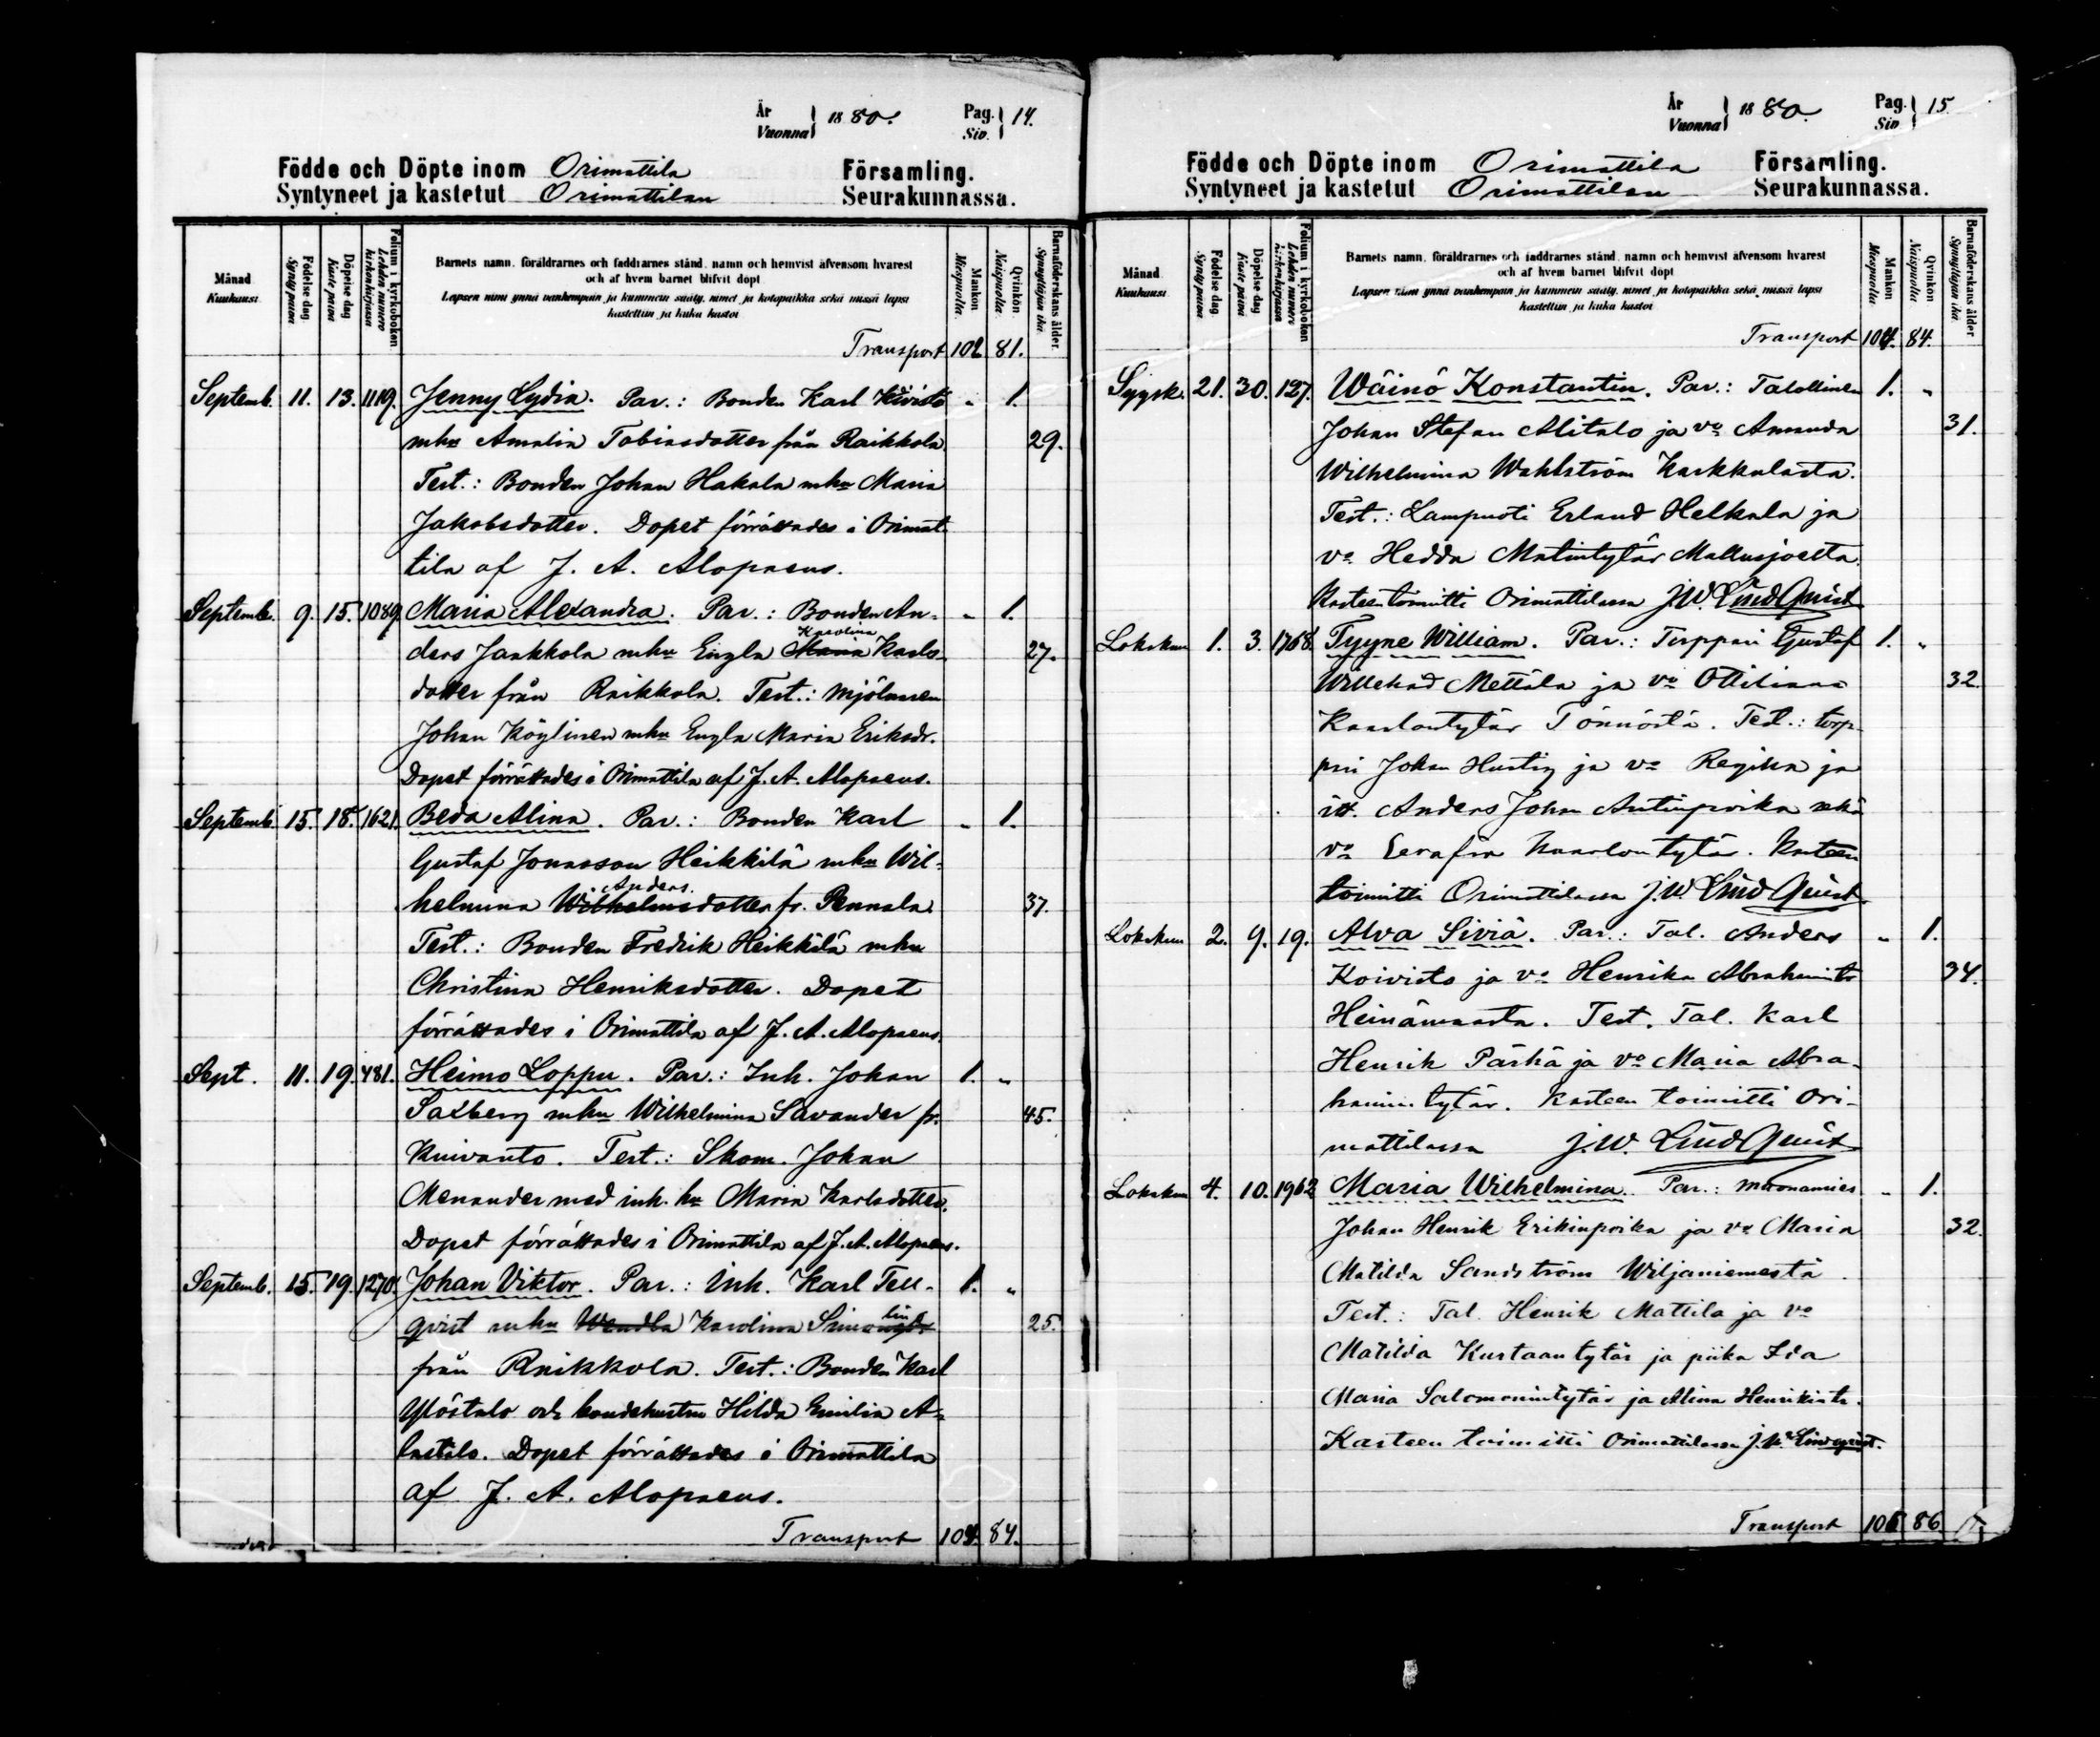 År
Vuonna } 1880. Pag.
Siv. } 14.
Födde och Döpte inom Orimattila Församling.
Syntyneet ja kastetut Orimattilan Seurakunnassa.
Månad
Kuukausi.
Födelse dag
Syntypäivä
Döpelse dag
Kaste päivä
Folium i kyrkoboken
Lehden numero kirkonkirjassa
Barnets namn, föräldrarnes och faddrarnes stånd, namn och hemvist äfvensom hvarest
och af hvem barnet blifvit döpt
Lapsen nimi ynnä vanhempain ja kummein sääty, nimet ja kotopaikka sekä missä lapsi
kastettiin ja kuka kastoi
Mankön
Miespuolia.
Qvinkön
Naispuolia.
Barnaföderskans ålder.
Synnyttäjän ikä.
Transport 102 81.
Septemb. 11. 13. 1119. Jenny Lydia. Par.: Bonden Karl Koivisto „ 1.
mhu Amalia Tobiasdotter från Raikkola. 29.
Test.: Bonden Johan Hakala mhu Maria
Jakobsdotter. Dopet förrättades i Orimat-
tila af J. A. Alopaeus.
Septemb. 9. 15. 1089. Maria Alexandra. Par.: Bonden An- „ 1.
ders Jaakkola mhu Engla Maria Karolina Karls- 27.
dotter från Raikkola. Test.: Mjölnaren
Johan Köylinen mhu Engla Maria Eriksdr.
Dopet förrättades i Orimattila af J. A. Alopaeus.
Septemb. 15. 18. 1621. Beda Alina. Par.: Bonden Karl „ 1.
Gustaf Jonasson Heikkilä mhu Wil-
helmina Wilhelmsdotter Anders. fr. Pennala. 37.
Test.: Bonden Fredrik Heikkilä mhu
Christina Henriksdotter. Dopet
förrättades i Orimattila af J. A. Alopaeus.
Sept. 11. 19. 481. Heimo Loppu. Par.: Inh. Johan 1. „
Saxberg mhu Wilhelmina Savander fr. 45.
Kuivanto. Test.: Skom. Johan
Menander med inh. hu Maria Karlsdotter.
Dopet förrättades i Orimattila af J. A. Alopaeus.
Septemb. 15. 19. 1270. Johan Viktor. Par.: Inh. Karl Tell- 1. „
qvist mhu Wendla Karolina 25.
från Raikkola. Test.: Bonden Karl
Ylöstalo och bondehustru Hilda Emilia A-
lastalo. Dopet förrättades i Orimattila
af J. A. Alopaeus.
Transport 104. 84.
År
Vuonna } 1880. Pag.
Siv } 15.
Födde och Döpte inom Orimattila Församling.
Syntyneet ja kastetut Orimattilan Seurakunnassa.
Månad
Kuukausi
Födelse dag
Syntypäivä
Döpelse dag
Kaste päivä
Folium i kyrkoboken
Lehden numero kirkonkirjassa
Barnets namn, föräldrarnes och faddrarnes stånd, namn och hemvist äfvensom hvarest
och af hvem barnet blifvit döpt
Lapsen nimi ynnä vanhempain ja kummein sääty, nimet ja kotopaikka sekä missä lapsi
kastettiin ja kuka kastoi
Mankön
Miespuolia
Qvinkön
Naispuolia
Barnaföderskans ålder
Synnyttäjän ikä.
Transport 104. 84.
Syysk. 21. 30. 127. Wäinö Konstantin. Par.: Talollinen 1. „
Johan Stefan Alitalo ja vo Amanda 31.
Wilhelmina Wahlström Karkkulasta.
Test.: Lampuoti Erland Helkala ja
vo Hedda Matintytär Mallusjoelta.
Kasteen toimitti Orimattilassa J.W. LindQvist
Lokakuu 1. 3. 1768. Tyyne William. Par.: Torppari Gustaf 1. „
Willehad Mettälä ja vo Ottiliana 32.
Kaarlontytär Tönnöstä. Test.: torp-
pari Johan Hustig ja vo Regina ja
itt. Anders Johan Antinpoika sekä
vo Serafia Kaarlontytär. Kasteen
toimitti Orimattilassa J.W. LindQvist
Lokakuu 2. 9. 19. Alva Siviä. Par.: Tal. Anders „ 1.
Koivisto ja vo Henrika Abrahamintr 34.
Heinämaasta. Test. Tal. Karl
Henrik Pärhä ja vo Maria Abra-
hamintytär. Kasteen toimitti Ori-
mattilassa J.W. LindQvist
Lokakuu 4. 10. 1962 Maria Wilhelmina. Par.: Muonamies „ 1.
Johan Henrik Erikinpoika ja vo Maria 32.
Matilda Sandström Wiljaniemestä.
Test.: Tal. Henrik Mattila ja vo
Matilda Kustaantytär ja piika Ida
Maria Salomonintytär ja Alina Henrikintr.
Kasteen toimitti Orimattilassa J.W. Lindqvist.
Transport 106 86